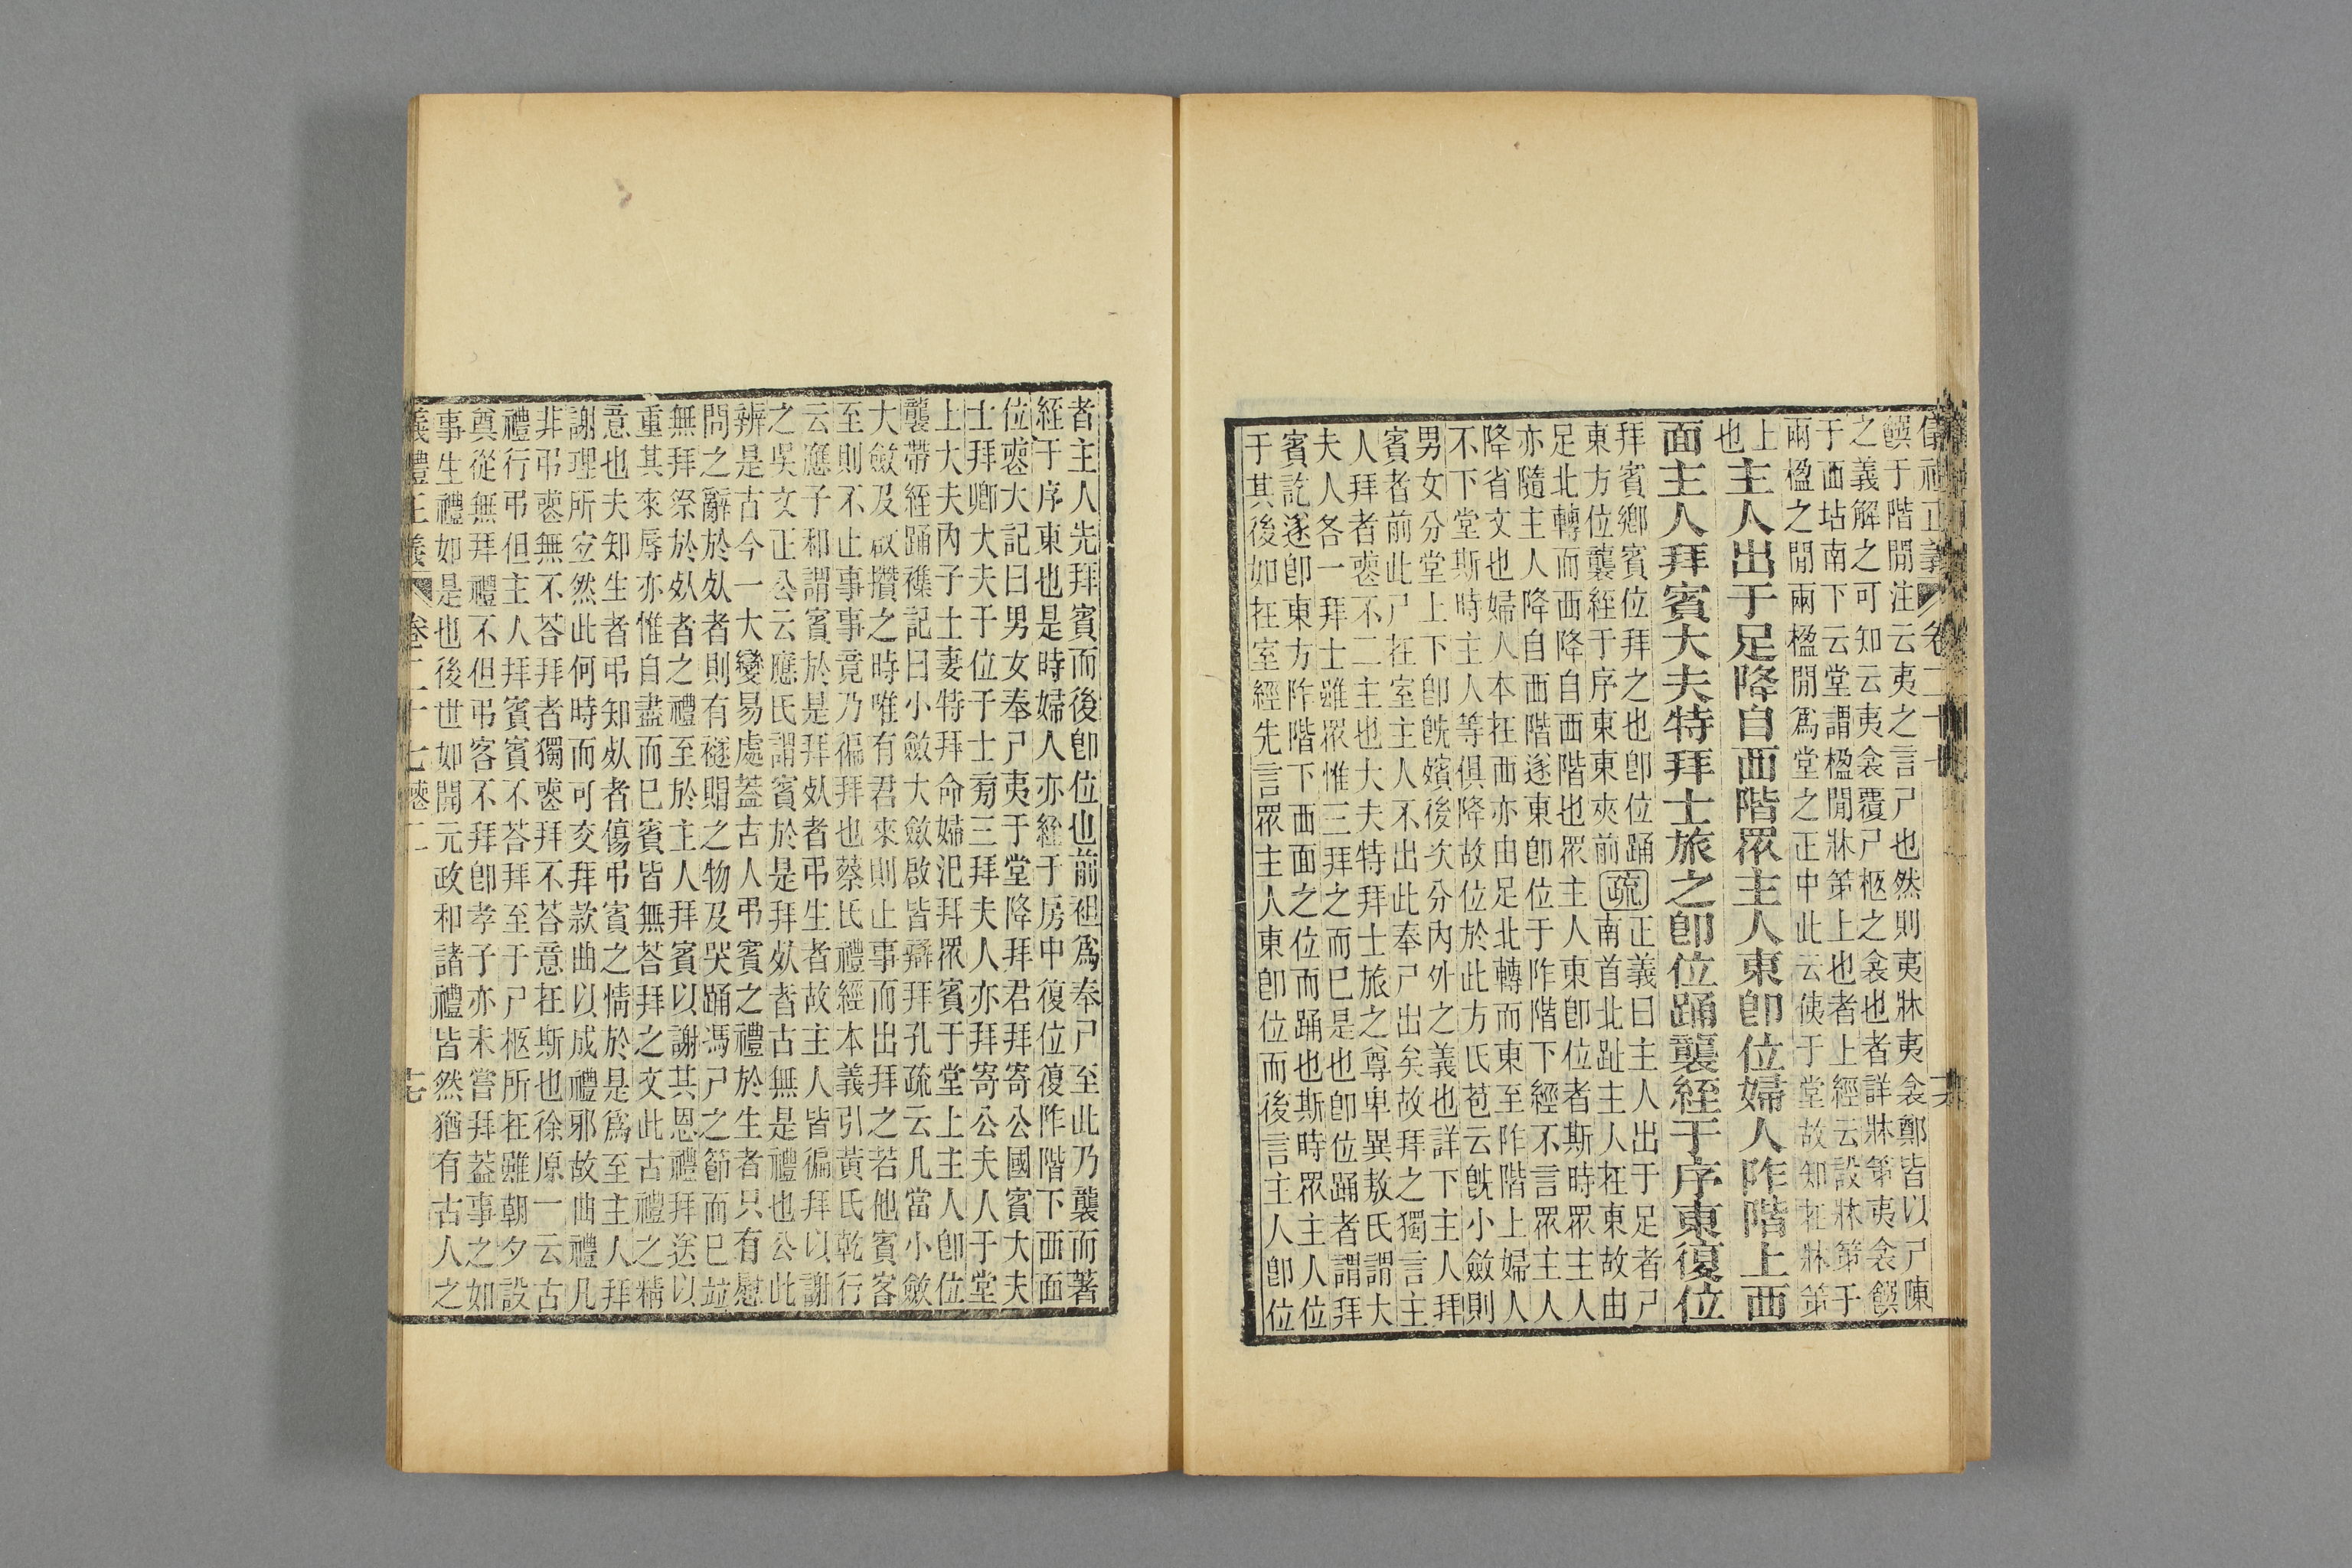 儀禮正義 卷二十七
饌于階閒注云夷之言尸也然則夷牀夷衾鄭皆以尸陳
之義解之可知云夷衾覆尸柩之衾也者詳牀笫夷衾饌
于西坫南下云堂謂楹閒牀笫上也者上經云設牀笫于
兩楹之閒兩楹閒爲堂之正中此云俠于堂故知在牀笫
上
也主人出于足降自西階眾主人東卽位婦人阼階上西
面主人拜賓大夫特拜士旅之卽位踊襲絰于序東復位
拜賓鄉賓位拜之也卽位踊
東方位襲絰于序東東夾前疏正義曰主人出于足者尸
南首北趾主人在東故由
足北轉而西降自西階也眾主人東卽位者斯時眾主人
亦隨主人降自西階遂東卽位于阼階下經不言眾主人
降省文也婦人本在西亦由足北轉而東至阼階上婦人
不下堂斯時主人等俱降故位於此方氏苞云旣小斂則
男女分堂上下卽旣嬪後次分內外之義也詳下主人拜
賓者前此尸在室主人不出此奉尸出矣故拜之獨言主
人拜者喪不二主也大夫特拜士旅之尊卑異敖氏謂大
夫人各一拜士雖眾惟三拜之而已是也卽位踊者謂拜
賓訖遂卽東方阼階下西面之位而踊也斯時眾主人位
于其後如在室經先言眾主人東卽位而後言主人卽位
者主人先拜賓而後卽位也前袒爲奉尸至此乃襲而著
絰于序東也是時婦人亦絰于房中復位復阼階下西面
位喪大記曰男女奉尸夷于堂降拜君拜寄公國賓大夫
士拜卿大夫于位于士㫄三拜夫人亦拜寄公夫人于堂
上大夫內子士妻特拜命婦氾拜眾賓于堂上主人卽位
襲帶絰踊襍記曰小斂大斂啟皆辯拜孔疏云凡當小斂
大斂及啟攢之時唯有君來則止事而出拜之若他賓客
至則不止事事竟乃徧拜也蔡氏禮經本義引黃氏乾行
云應子和謂賓於是拜死者弔生者故主人皆徧拜以謝
之吳文正公云應氏謂賓於是拜死者古無是禮也公此
辨是古今一大變易處蓋古人弔賓之禮於生者只有慰
問之辭於死者則有襚賵之物及哭踊馮尸之節而已竝
無拜祭於死者之禮至於主人拜賓以謝其恩禮拜送以
重其來辱亦惟自盡而已賓皆無荅拜之文此古禮之精
意也夫知生者弔知死者傷弔賓之情於是爲至主人拜
謝理所宜然此何時而可交拜款曲以成禮邪故曲禮凡
非弔喪無不荅拜者獨喪拜不荅意在斯也徐原一云古
禮行弔但主人拜賓賓不荅拜至于尸柩所在雖朝夕設
奠從無拜禮不但弔客不拜卽孝子亦未嘗拜葢事之如
事生禮如是也後世如開元政和諸禮皆然猶有古人之
儀禮正義 卷二十七喪二 十七